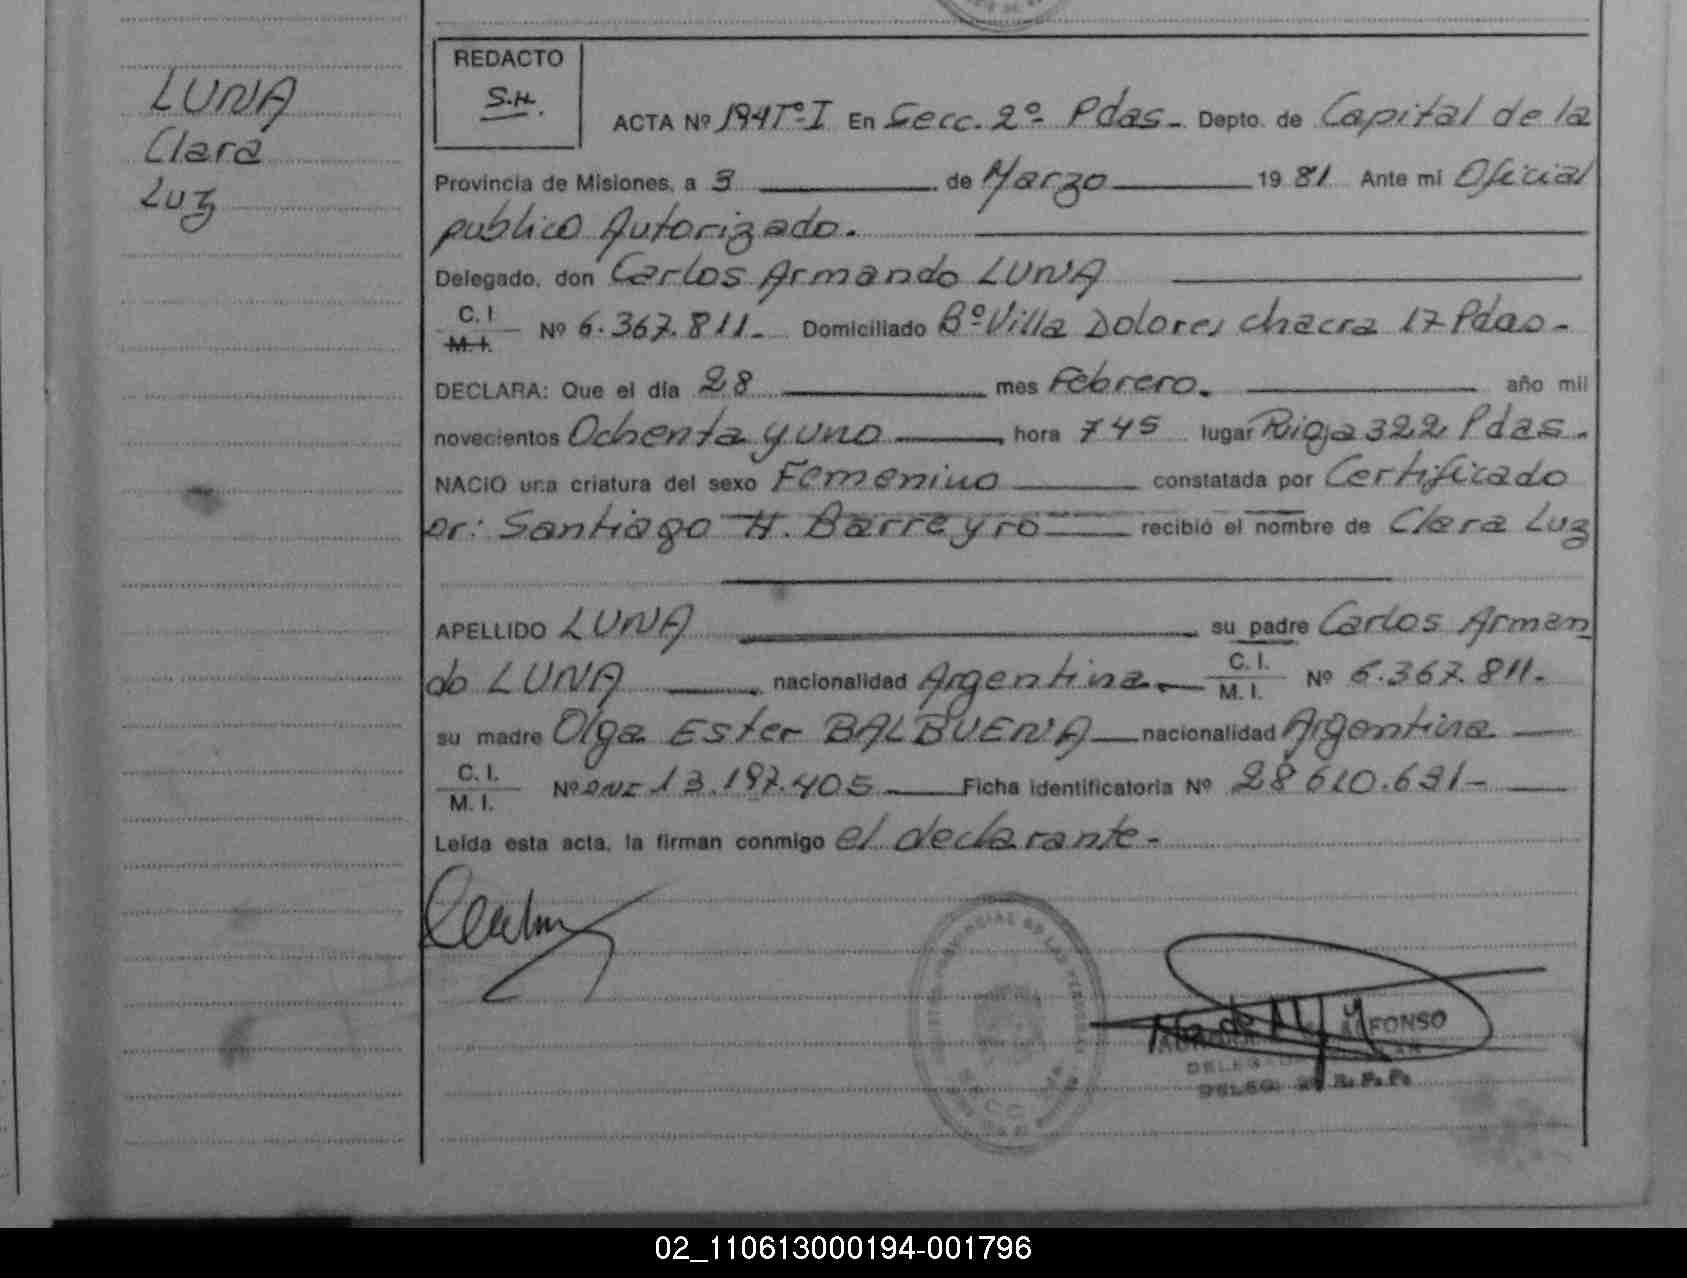 LUNA
Clara
Luz
REDACTO
S.H.
ACTA Nº 194 Tº I En Secc. 2º Pdas - Depto. de Capital de la
Provincia de Misiones, a 3 de Marzo 1981 Ante mi Oficial
publico Autorizado.
Delegado, don Carlos Armando LUNA
C. I.
M. I.
Nº 6.367.811 - Domiciliado Bº Villa Dolores chacra 17 Pdas -
DECLARA: Que el día 28 mes Febrero. año mil
novecientos Ochenta y uno, hora 745 lugar Rioja 322 Pdas.
NACIO una criatura del sexo Femenino constatada por Certificado
Dr: Santiago H. Barreyro recibió el nombre de Clara Luz
APELLIDO LUNA su padre Carlos Arman
do LUNA, nacionalidad Argentina. C. I.
M. I. Nº 6.367.811.
su madre Olga Ester BALBUENA nacionalidad Argentina
C. I.
M. I.
Nº DNI 13.197.405 Ficha identificatoria Nº 28 610.631 -
Leída esta acta, la firman conmigo el declarante -
FONSO
DELEG. R. P. P.
02_110613000194-001796